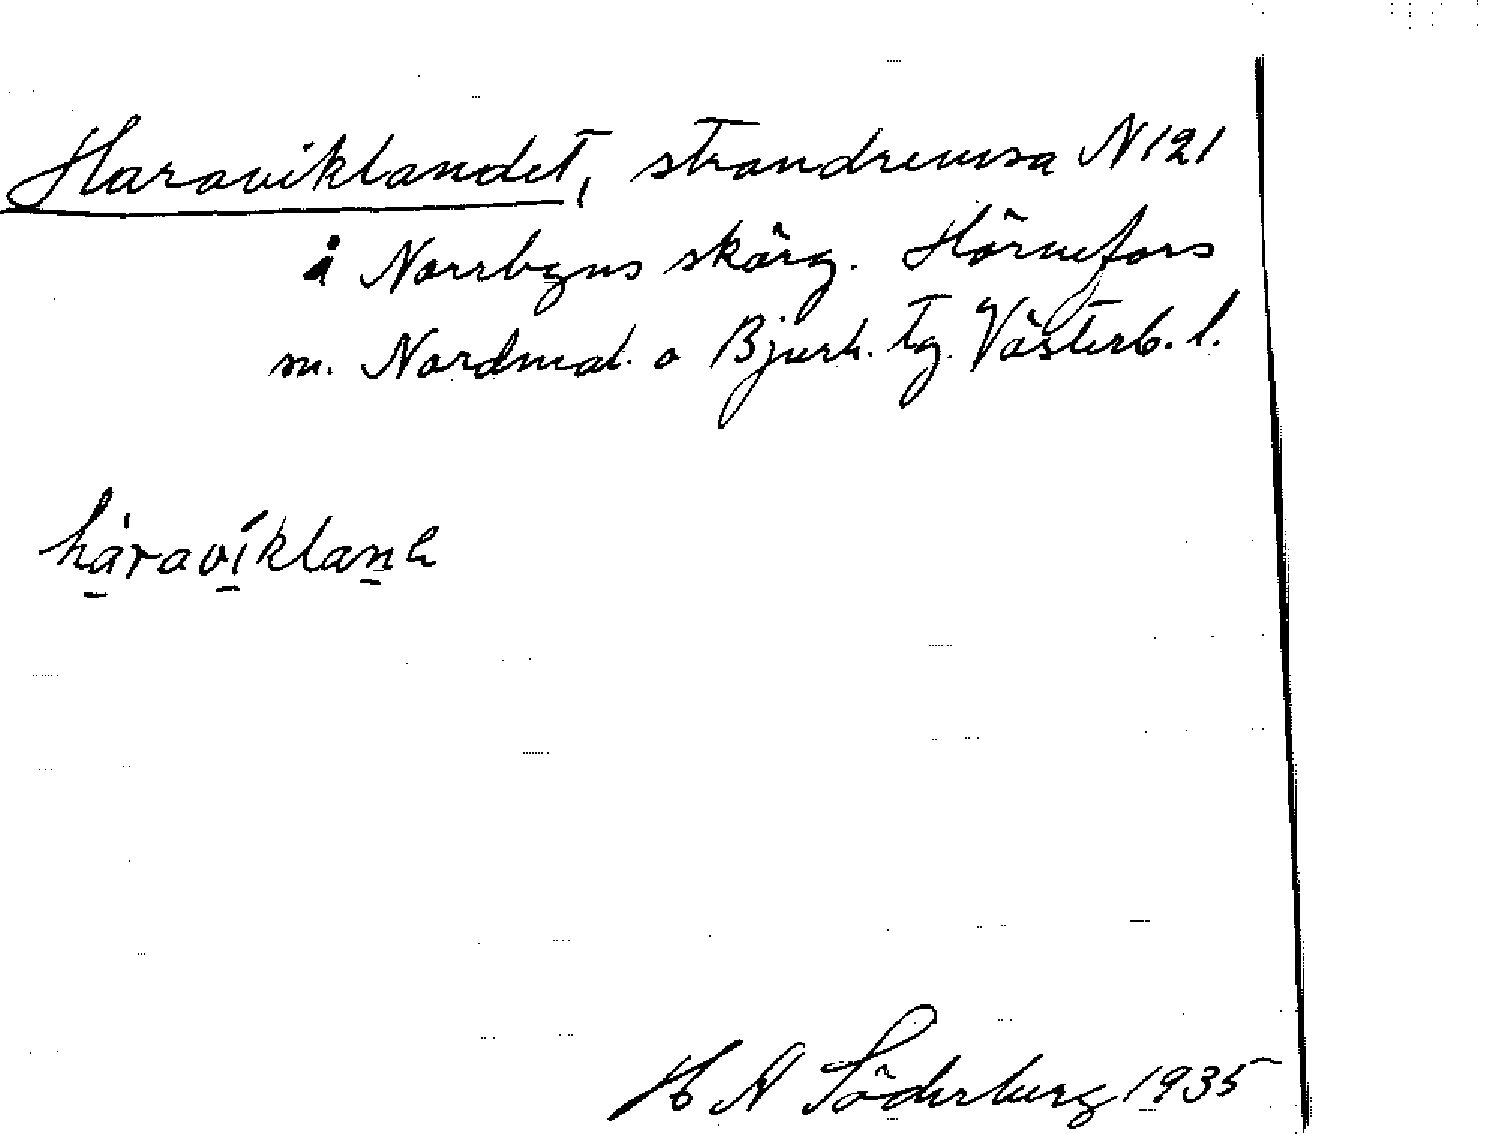 Haraviklandet, strandremsa N121
å Norrbyns skärg. Hörnefors
sn. Nordmal. o Bjurh. tg. Västerb. l.
håravíklanḛ
H N Söderberg 1935